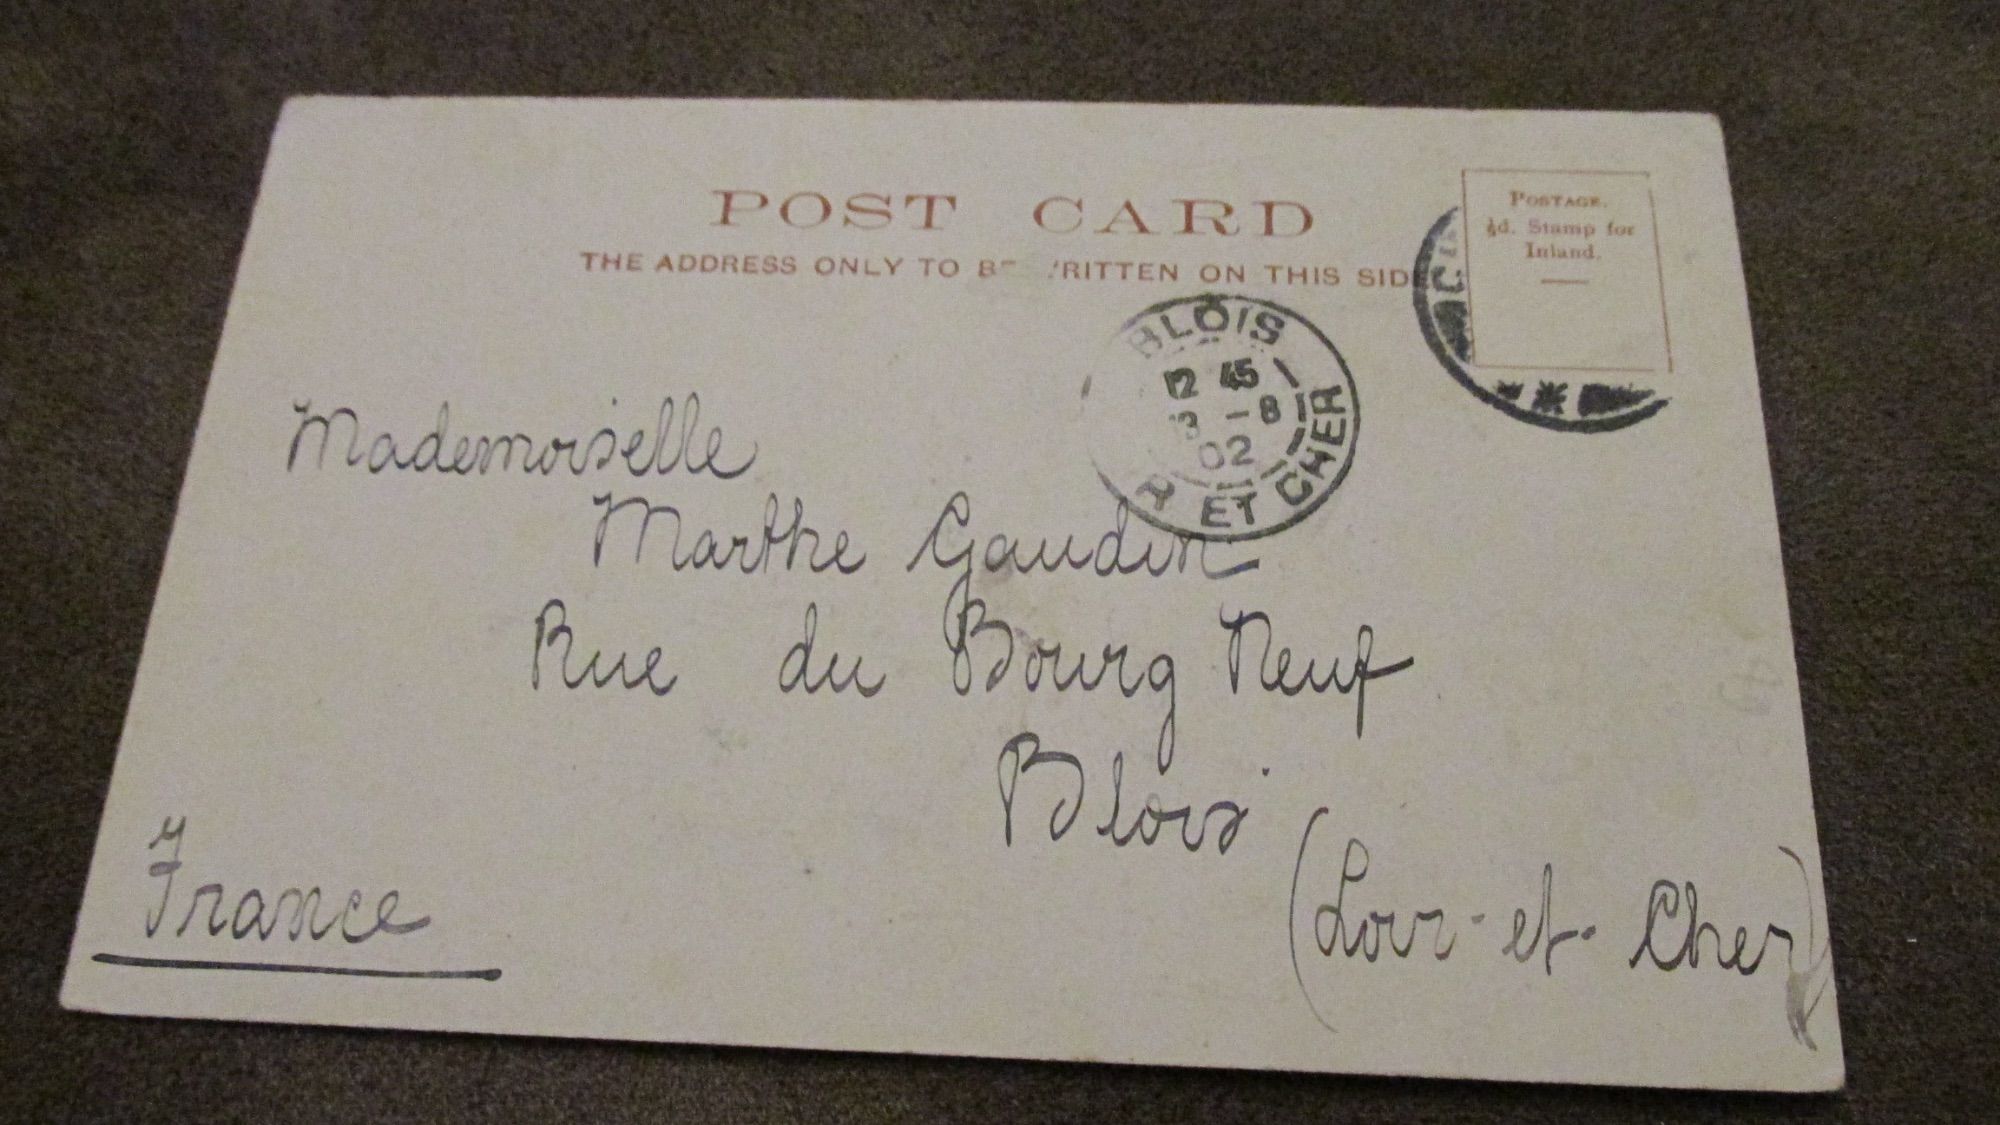 POST CARD
THE ADDRESS ONLY TO BE WRITTEN ON THIS SIDE
POSTAGE.
½d. Stamp for
Inland.
BLOIS
12 45
3 -8
02
R ET CHER
Mademoiselle
Marthe Gaudin
Rue du Bourg Neuf
Blois
(Loir-et-Cher)
France